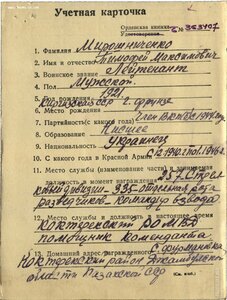 Учетная карточка
Орденская книжка
Удостоверение № 353407
1. Фамилия Мирошниченко
2. Имя и отчество Тимофей Максимович
3. Воинское звание Лейтенант
4. Пол Мужской
5. Год рождения 1921
6. Место рождения г. Фрунзе
7. Партийность (с какого года) член ВКП(б) с
8. Образование Низшее
9. Национальность Украинец
10. С какого года в Красной Армии С 1940 г. по 1946 г.
11. Место службы
должность в момент награждения
дивизии - 335 отдельная рота
разведчиков - командир взвода
12. Место службы и должность в настоящее время
РО МВД
помощник коменданта
13. Домашний адрес награжденного с. Фурмановка
район Джамбулской
области Казахской ССР